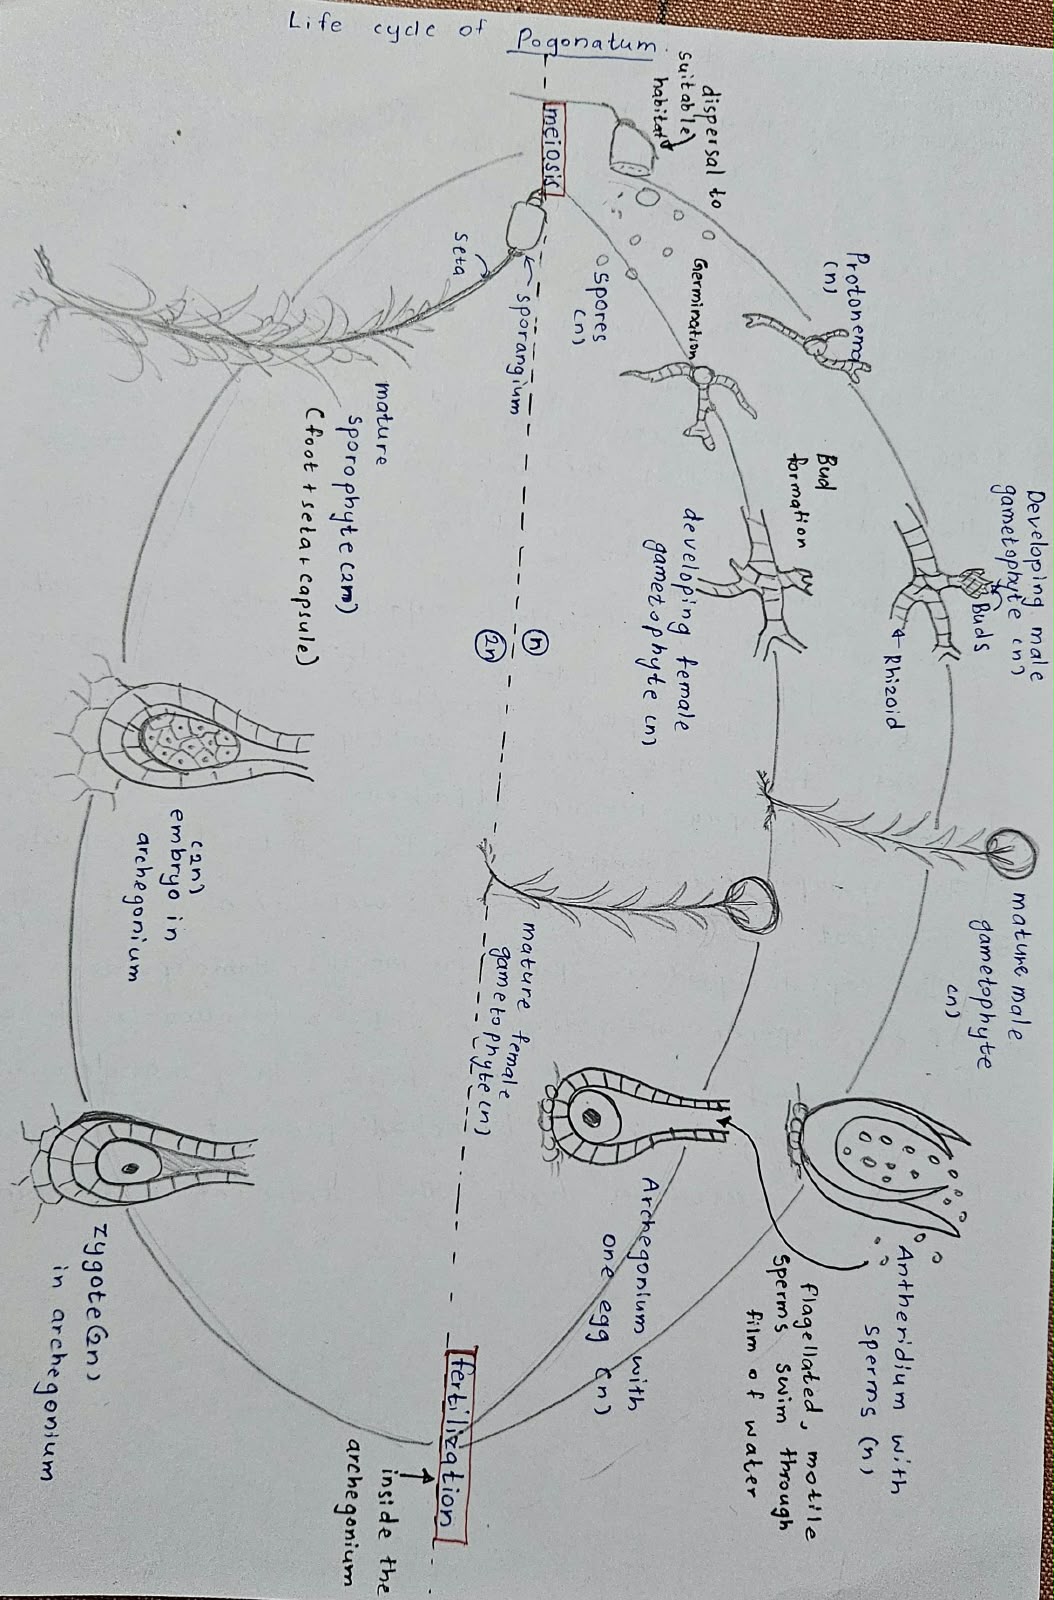 Life cycle of Pogonatum.
dispersal to
suitable
habitat
meiosis
spores
(n)
Germination
Protonema
(n)
Bud
formation
Developing male
gametophyte (n)
Buds
Rhizoid
developing female
gametophyte (n)
mature male
gametophyte
(n)
mature female
gametophyte (n)
Antheridium with
sperms (n)
flagellated, motile
sperms swim through
film of water
Archegonium with
one egg (n)
n
2n
fertilization
inside the
archegonium
zygote (2n)
in archegonium
(2n)
embryo in
archegonium
mature
sporophyte (2n)
(foot + seta + capsule)
sporangium
seta